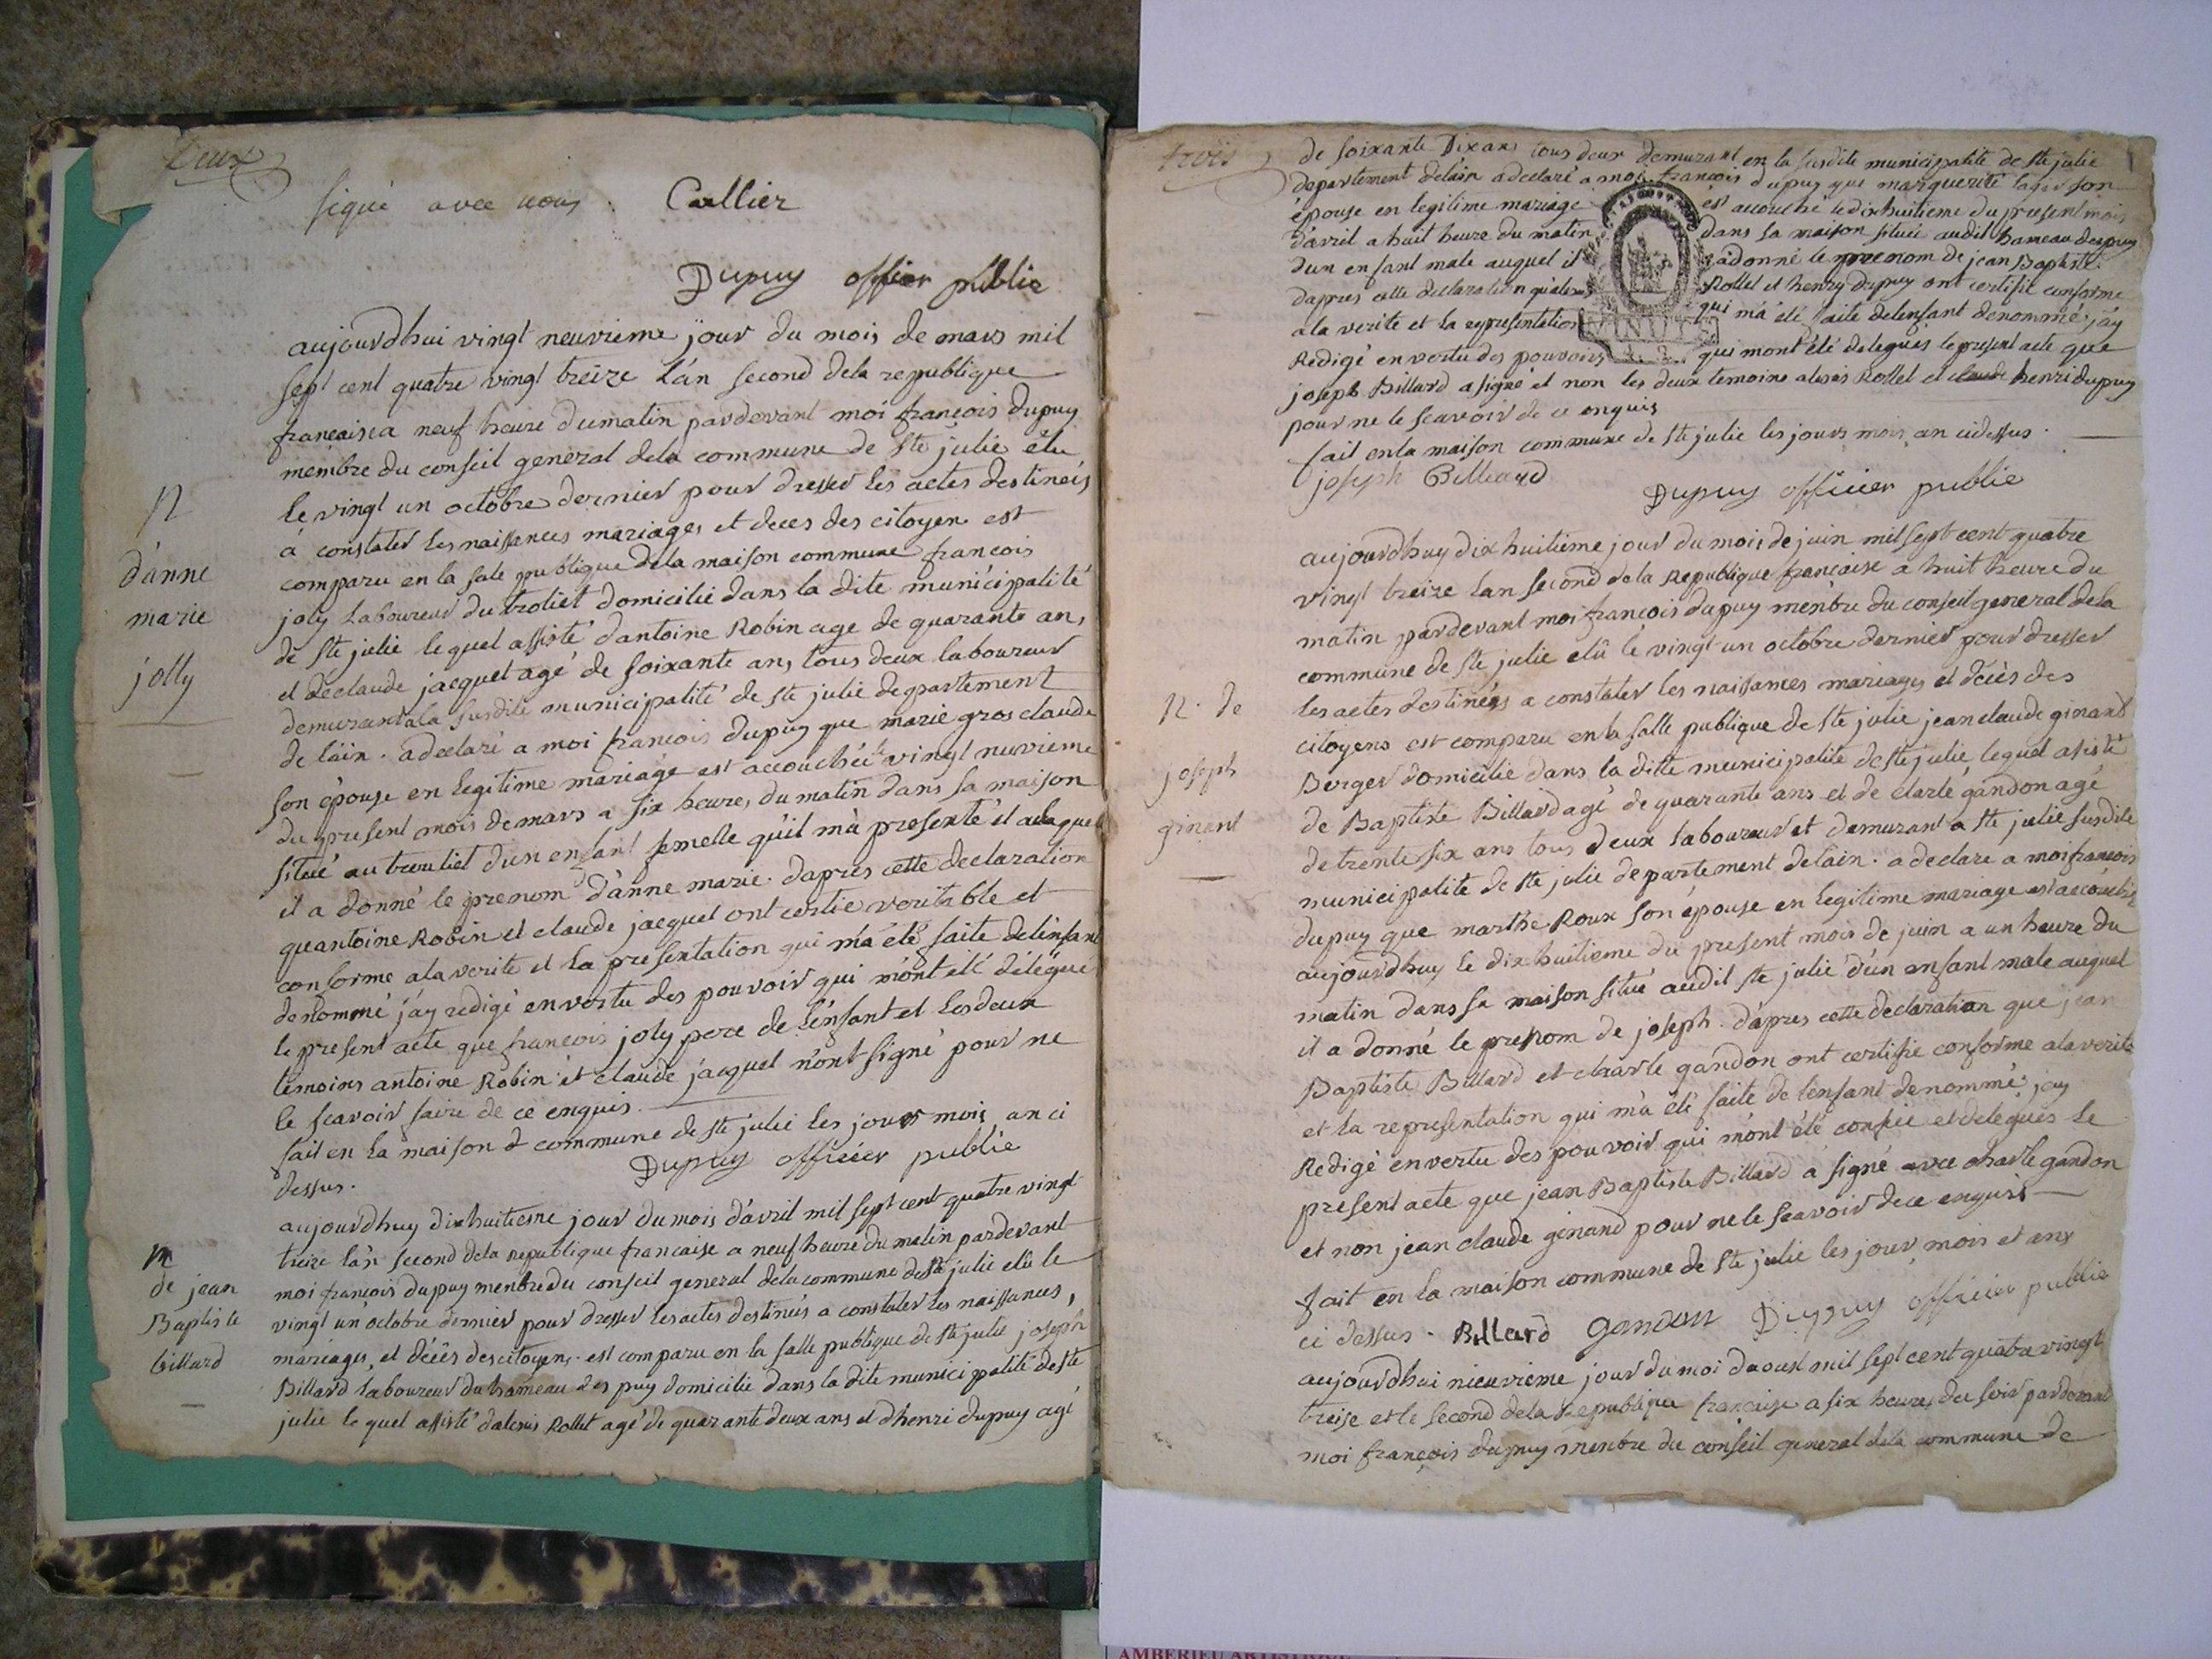 deux
signé avec nous. Callier
Dupuy offier public
aujourdhui vingt neuvrieme jour du mois de mars mil
sept cent quatre vingt treize L'an second dela republique
francaise a neuf heure dumatin pardevant moi francois dupuy
membre du conseil general dela commune de ste julie élu
le vingt un octobre dernier pour dresser les actes destineés
à constater les naissances mariages et deces des citoyens est
comparu en la sale publique dela maison commune francois
joly Laboureur du troliet domicilié dans la dite municipalité
de ste julie lequel assisté dantoine Robin age de quarante ans
et declaude jacquet agé de soixante ans tous deux laboureur
demurant ala susdite municipalité de ste julie departement
de lain. a declaré a moi francois dupuy que marie gros claude
son épouse en legitime mariage est accouchée le vingt nuvrieme
du present mois de mars a six heures du matin dans sa maison
situé au trouliet dun enfant femelle qu'il m'a presenté et alaquel
il a donné le prenom d'anne marie. dapres cette declaration
quantoine Robin et claude jacquet ont certie veritable et
conforme ala verite et la presentation qui m'a été faite delinfant
denommé j'ay redigé envertu des pouvoir qui m'ont été délégué
le present acte que francois joly pere de L'enfant et Les deux
temoins antoine Robin et claude jacquet n'ont signé pour ne
le scavoir faire de ce enquis.
fait en la maison d commune de ste julie les jours mois an ci
dessus.
Dupuy officier publie
N
d'anne
marie
jolly
aujourdhuy dixhuitieme jour dumois d'avril mil sept cent quatre vingt
treize l'an second dela republique francaise a neuf heure du matin pardevant
moi francois dupuy menbre du conseil general dela commune deste julie elû le
vingt un octobre dernier pour dresser les actes destinés a constater les naissances,
mariages et décés des citoyens. est comparu en la salle publique de ste julie joseph
Billard laboureur du hameau des puy domicilié dans la dite municipalité deste
julie le quel assisté dalexis Rollet agé de quarante deux ans et dhenri dupuy agé
N
de jean
Baptiste
billard
trois
de soixante Dix ans tous deux demurant en la susdite municipalité de ste julie
departement delain a declaré a moi francois dupuy que marguerite lager son
épouse en legitime mariage est accouché le dixhuitieme du present mois
d'avril a huit heure du matin dans sa maison située audit hameau des puy
dun enfant male auquel il a donné le prenom de jean Baptiste.
dapres cette declaration qualexis Rollet et henry dupuy ont certifié conforme
a la verite et la representation qui m'a été faite delenfant denommé j'ay
Redigé en vertu des pouvoirs qui mont été delegués le present acte que
joseph Billard a signé et non les deux temoins alexis Rollet et claude henri dupuy
pour ne le scavoir de ce enquis
fait en la maison commune de ste julie les jours mois an cidessus.
joseph Billiard
Dupuy officier publie
MINUTE
aujourdhuy dix huitieme jour du mois de juin mil sept cent quatre
vingt treize Lan second dela Republique francaise a huit heure du
matin pardevant moi francois dupuy menbre du conseil general dela
commune de ste julie elû le vingt un octobre dernier pour dresser
les actes destinées a constater les naissances mariages et décès des
citoyens est comparu en la salle publique de ste julie jean claude ginand
Berger domicilié dans la dite municipalite deste julie lequel assisté
de Baptiste Billard agé de quarante ans et de charle gandon agé
de trente six ans tous deux laboureur et demurant a ste julie susdite
municipalite de ste julie departement delain. a declare a moi francois
dupuy que marthe Roux son épouse en legitime mariage est accouchée
aujourdhuy le dix huitieme du present mois de juin a un heure du
matin dans sa maison situé audit ste julie d'un enfant male auquel
il a donné le prenom de joseph. d'apres cette declaration que jean
Baptiste Billard et charle gandon ont certifie conforme ala verité
et la representation qui m'a été faite de l'enfant denommé jay
Redigé en vertu des pouvoir qui m'ont été confié et delegués le
present acte que jean Baptiste Billard a signé avec charle gandon
et non jean claude ginand pour ne le scavoir dece enquis
fait en la maison commune de ste julie les jour mois et ans
ci dessus. Billard gandon Dupuy officier publie
N. de
joseph
ginant
aujourdhui nieuvieme jour du moi daoust mil sept cent quatre vingt
treise et le second dela Republique francaise a six heures du soir pardevant
moi françois dupuy menbre du conseil general dela commune de
AMBERIEU ARTISTIQUE